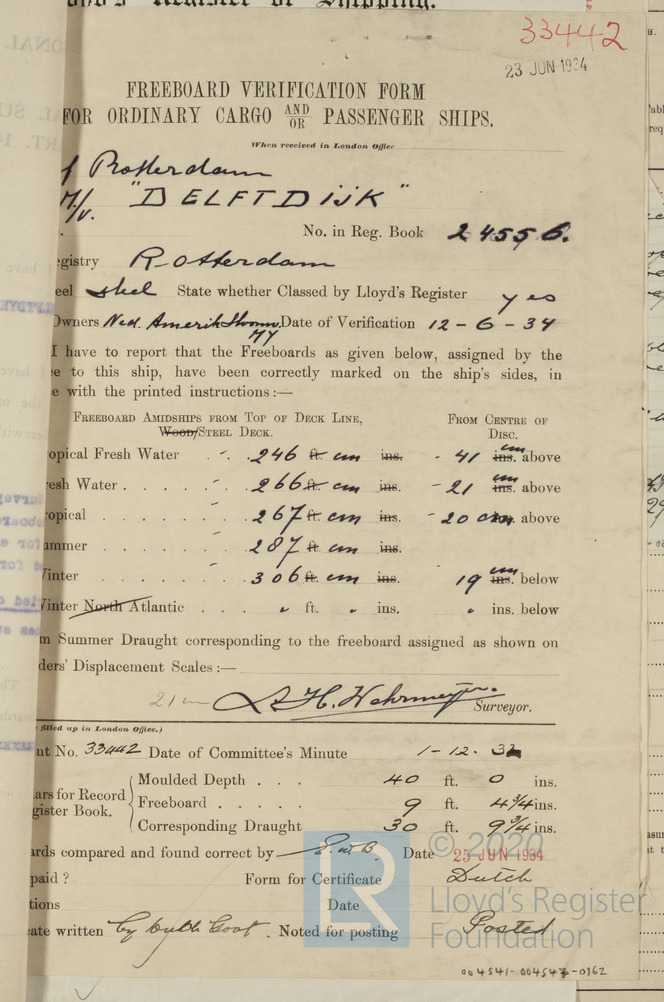 33442
23 JUN 1934
FREEBOARD VERIFICATION FORM
FOR ORDINARY CARGO AND/OR PASSENGER SHIPS.
When received in London Office
f Rotterdam
M/V. "DELFTDIJK"
No. in Reg. Book 24556.
egistry Rotterdam
eel steel State whether Classed by Lloyd's Register yes
Owners Ned. Amerik Stoomv. My Date of Verification 12-6-34
I have to report that the Freeboards as given below, assigned by the
e to this ship, have been correctly marked on the ship's sides, in
e with the printed instructions:—
FREEBOARD AMIDSHIPS FROM TOP OF DECK LINE, FROM CENTRE OF
WOOD/STEEL DECK. DISC.
opical Fresh Water . . 246 ft. cm ins. - 41 ins. cm above
esh Water . . . 266 ft. cm ins. - 21 ins. cm above
opical . . . . . . 267 ft. cm ins. - 20 cm above
ummer . . . . . . 287 ft. cm ins.
Winter . . . . . . 306 ft. cm ins. 19 ins. cm below
Winter North Atlantic . . . " ft. " ins. " ins. below
m Summer Draught corresponding to the freeboard assigned as shown on
ders' Displacement Scales :—
21 cm
Surveyor.
filled up in London Office.)
nt No. 33442 Date of Committee's Minute 1-12-32
ars for Record
gister Book.
Moulded Depth . . . 40 ft. 0 ins.
Freeboard . . . . . 9 ft. 4 3/4 ins.
Corresponding Draught 30 ft. 9 3/4 ins.
rds compared and found correct by Date 25 JUN 1934
paid ? Form for Certificate Dutch
tions Date
ate written by Dutch Govt. Noted for posting Posted
© 2020
Lloyd's Register
Foundation
004541-004547-0162